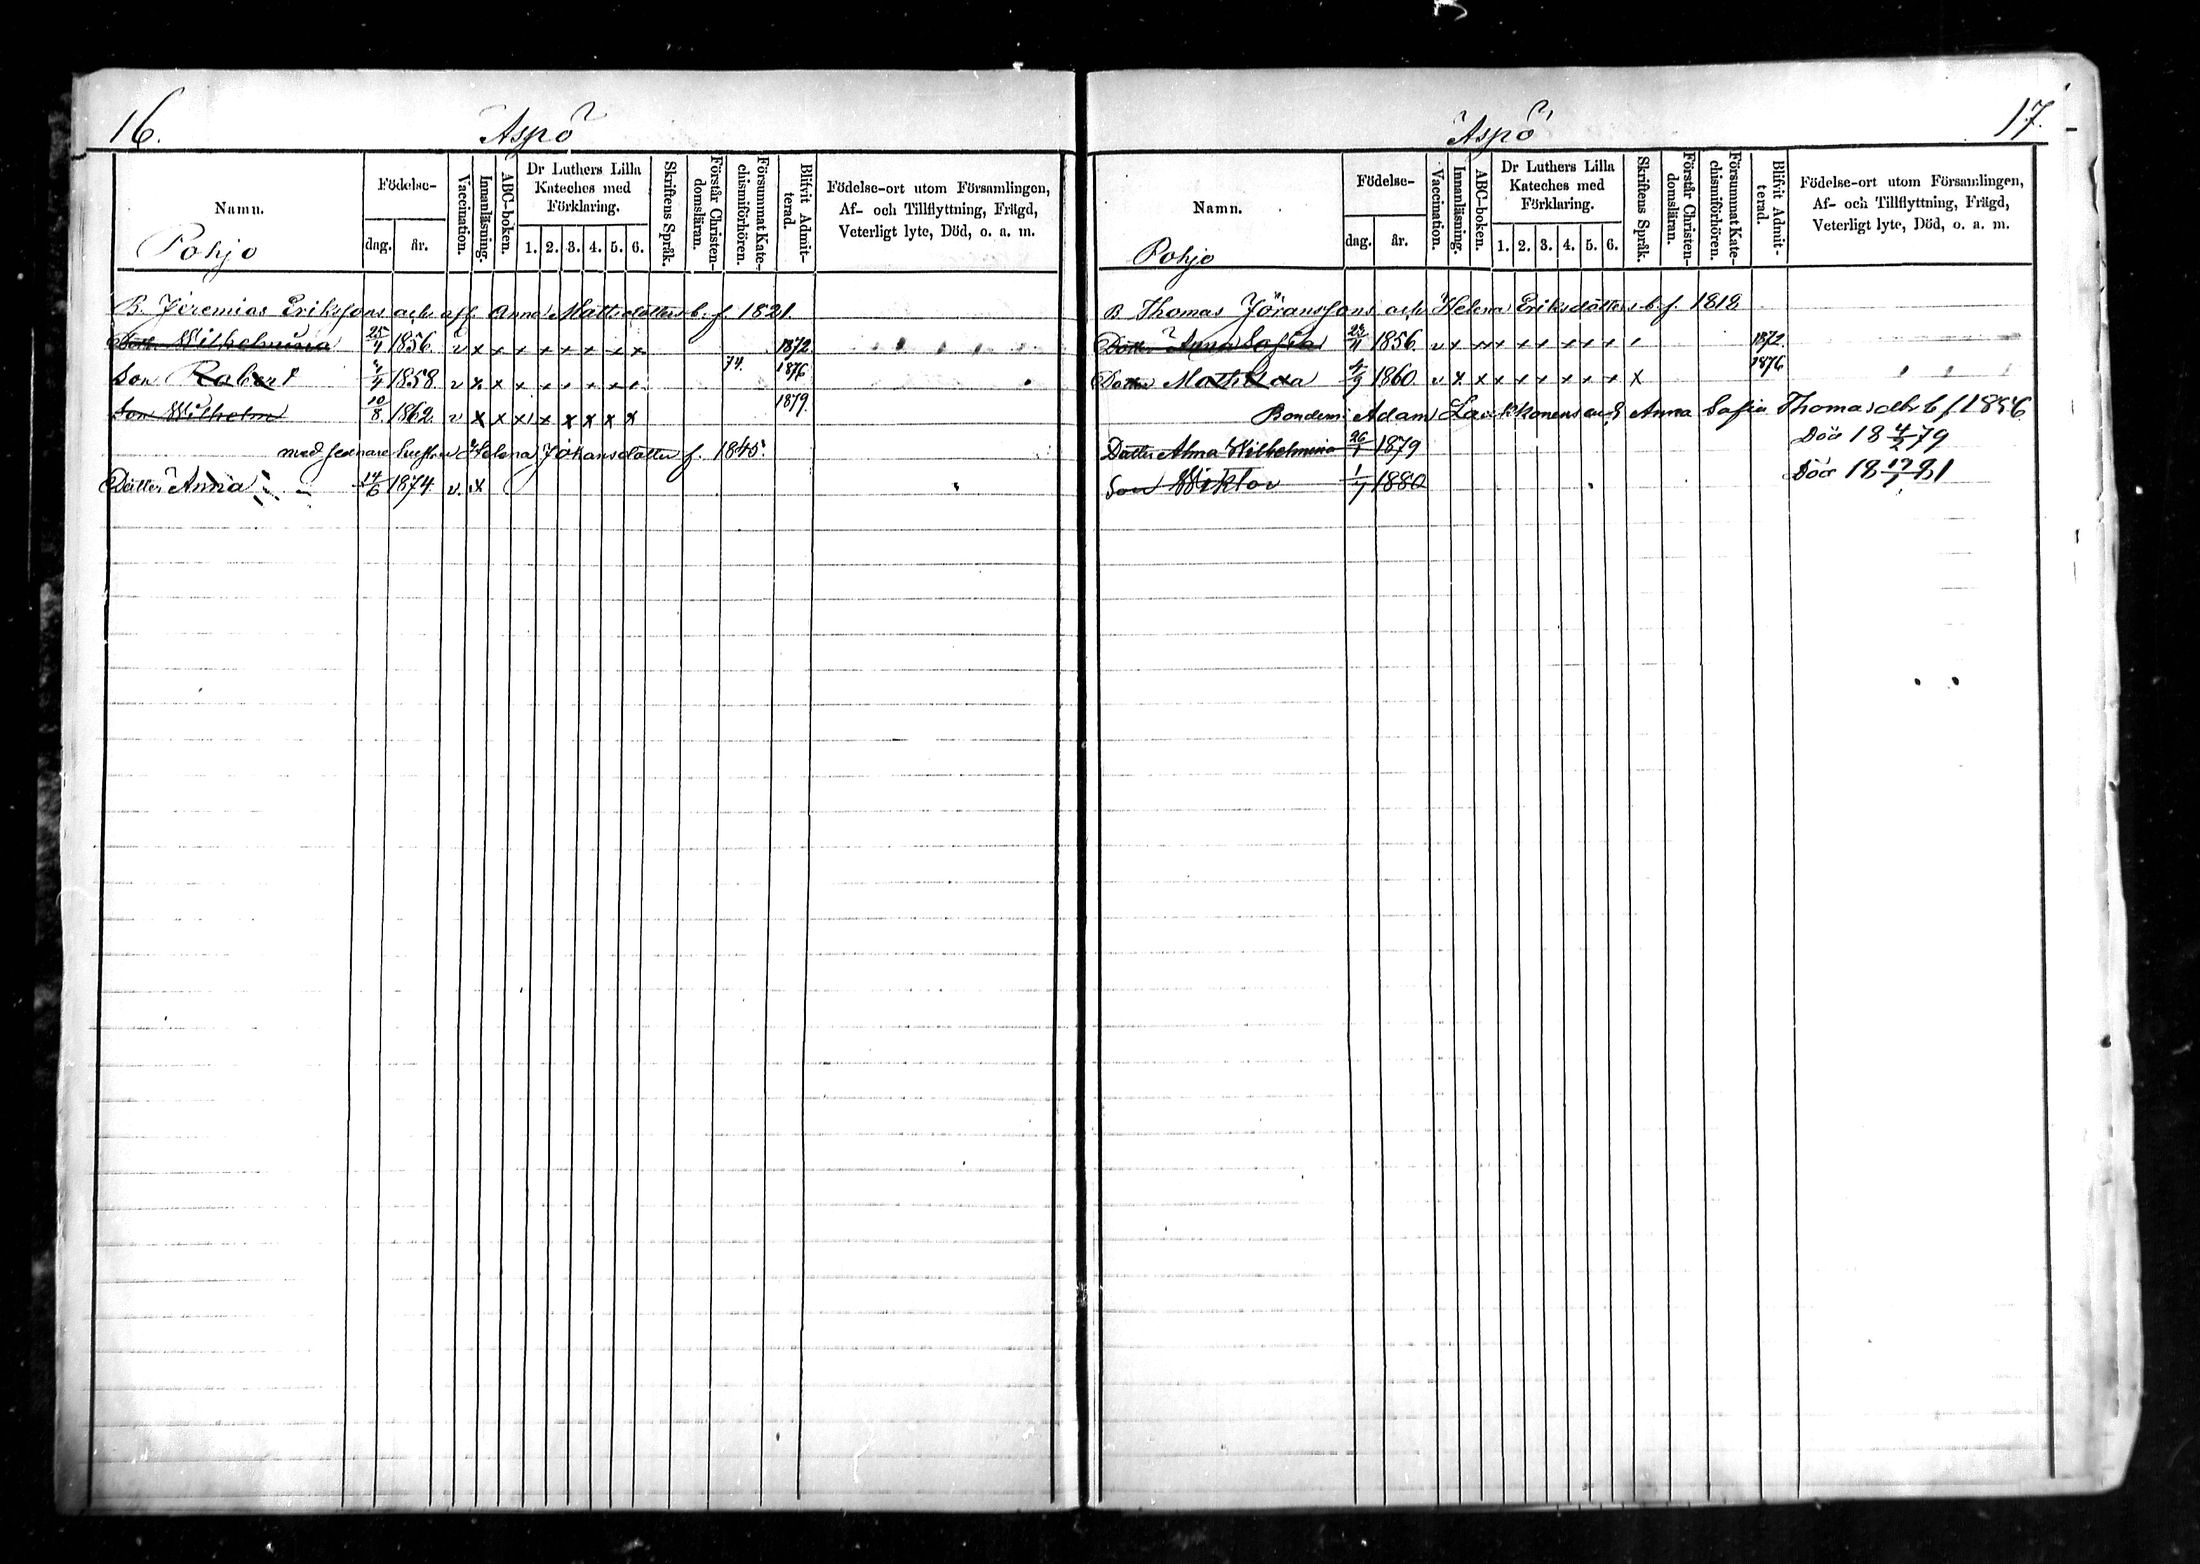 16.
Aspö
Namn.
Födelse-
dag.
år.
Vaccination.
Innanläsning.
ABC-boken.
Dr Luthers Lilla
Kateches med
Förklaring.
1. 2. 3. 4. 5. 6.
Skriftens Språk.
Förstår Christen-
domsläran.
Försummat Kate-
chismiförhören.
Blifvit Admit-
terad.
Födelse-ort utom Församlingen,
Af- och Tillflyttning, Frägd,
Veterligt lyte, Död, o. a. m.
Pohjo
B. Jeremias Erikssons och afl. Anna Mattsdotters b. f. 1821.
Dott. Wilhelmina 25/1 1856. v x x x x x x x x 1872.
Son Robert 1858. v x x x x x x x x 74. 1876
Son Wilhelm 10/8 1862 v x x x x x x x x 1879.
med senare hustrun Helena Johansdotter f. 1845.
Dotter Anna 14/6 1874 v. x
17.
Aspö
Namn.
Födelse-
dag.
år.
Vaccination.
Innanläsning.
ABC-boken.
Dr Luthers Lilla
Kateches med
Förklaring.
1. 2. 3. 4. 5. 6.
Skriftens Språk.
Förstår Christen-
domsläran.
Försummat Kate-
chismiförhören.
Blifvit Admit-
terad.
Födelse-ort utom Församlingen,
Af- och Tillflyttning, Frägd,
Veterligt lyte, Död, o. a. m.
Pohjo
B Thomas Jöranssons och Helena Eriksdotters b. f. 1812
Dotter Anna Sofia 1856 v x x x x x x x x 1872
Dotter Mathilda 4/9 1860. v x x x x x x x x x 1876
Bonden Adam Laukkanens och Anna Sofia Thomasdtrs b f 1856
Dotter Alma Wilhelmina 26/1 1879 Död 18 4/2 79
Son Wiktor 1/7 1880 Död 18 17/7 81